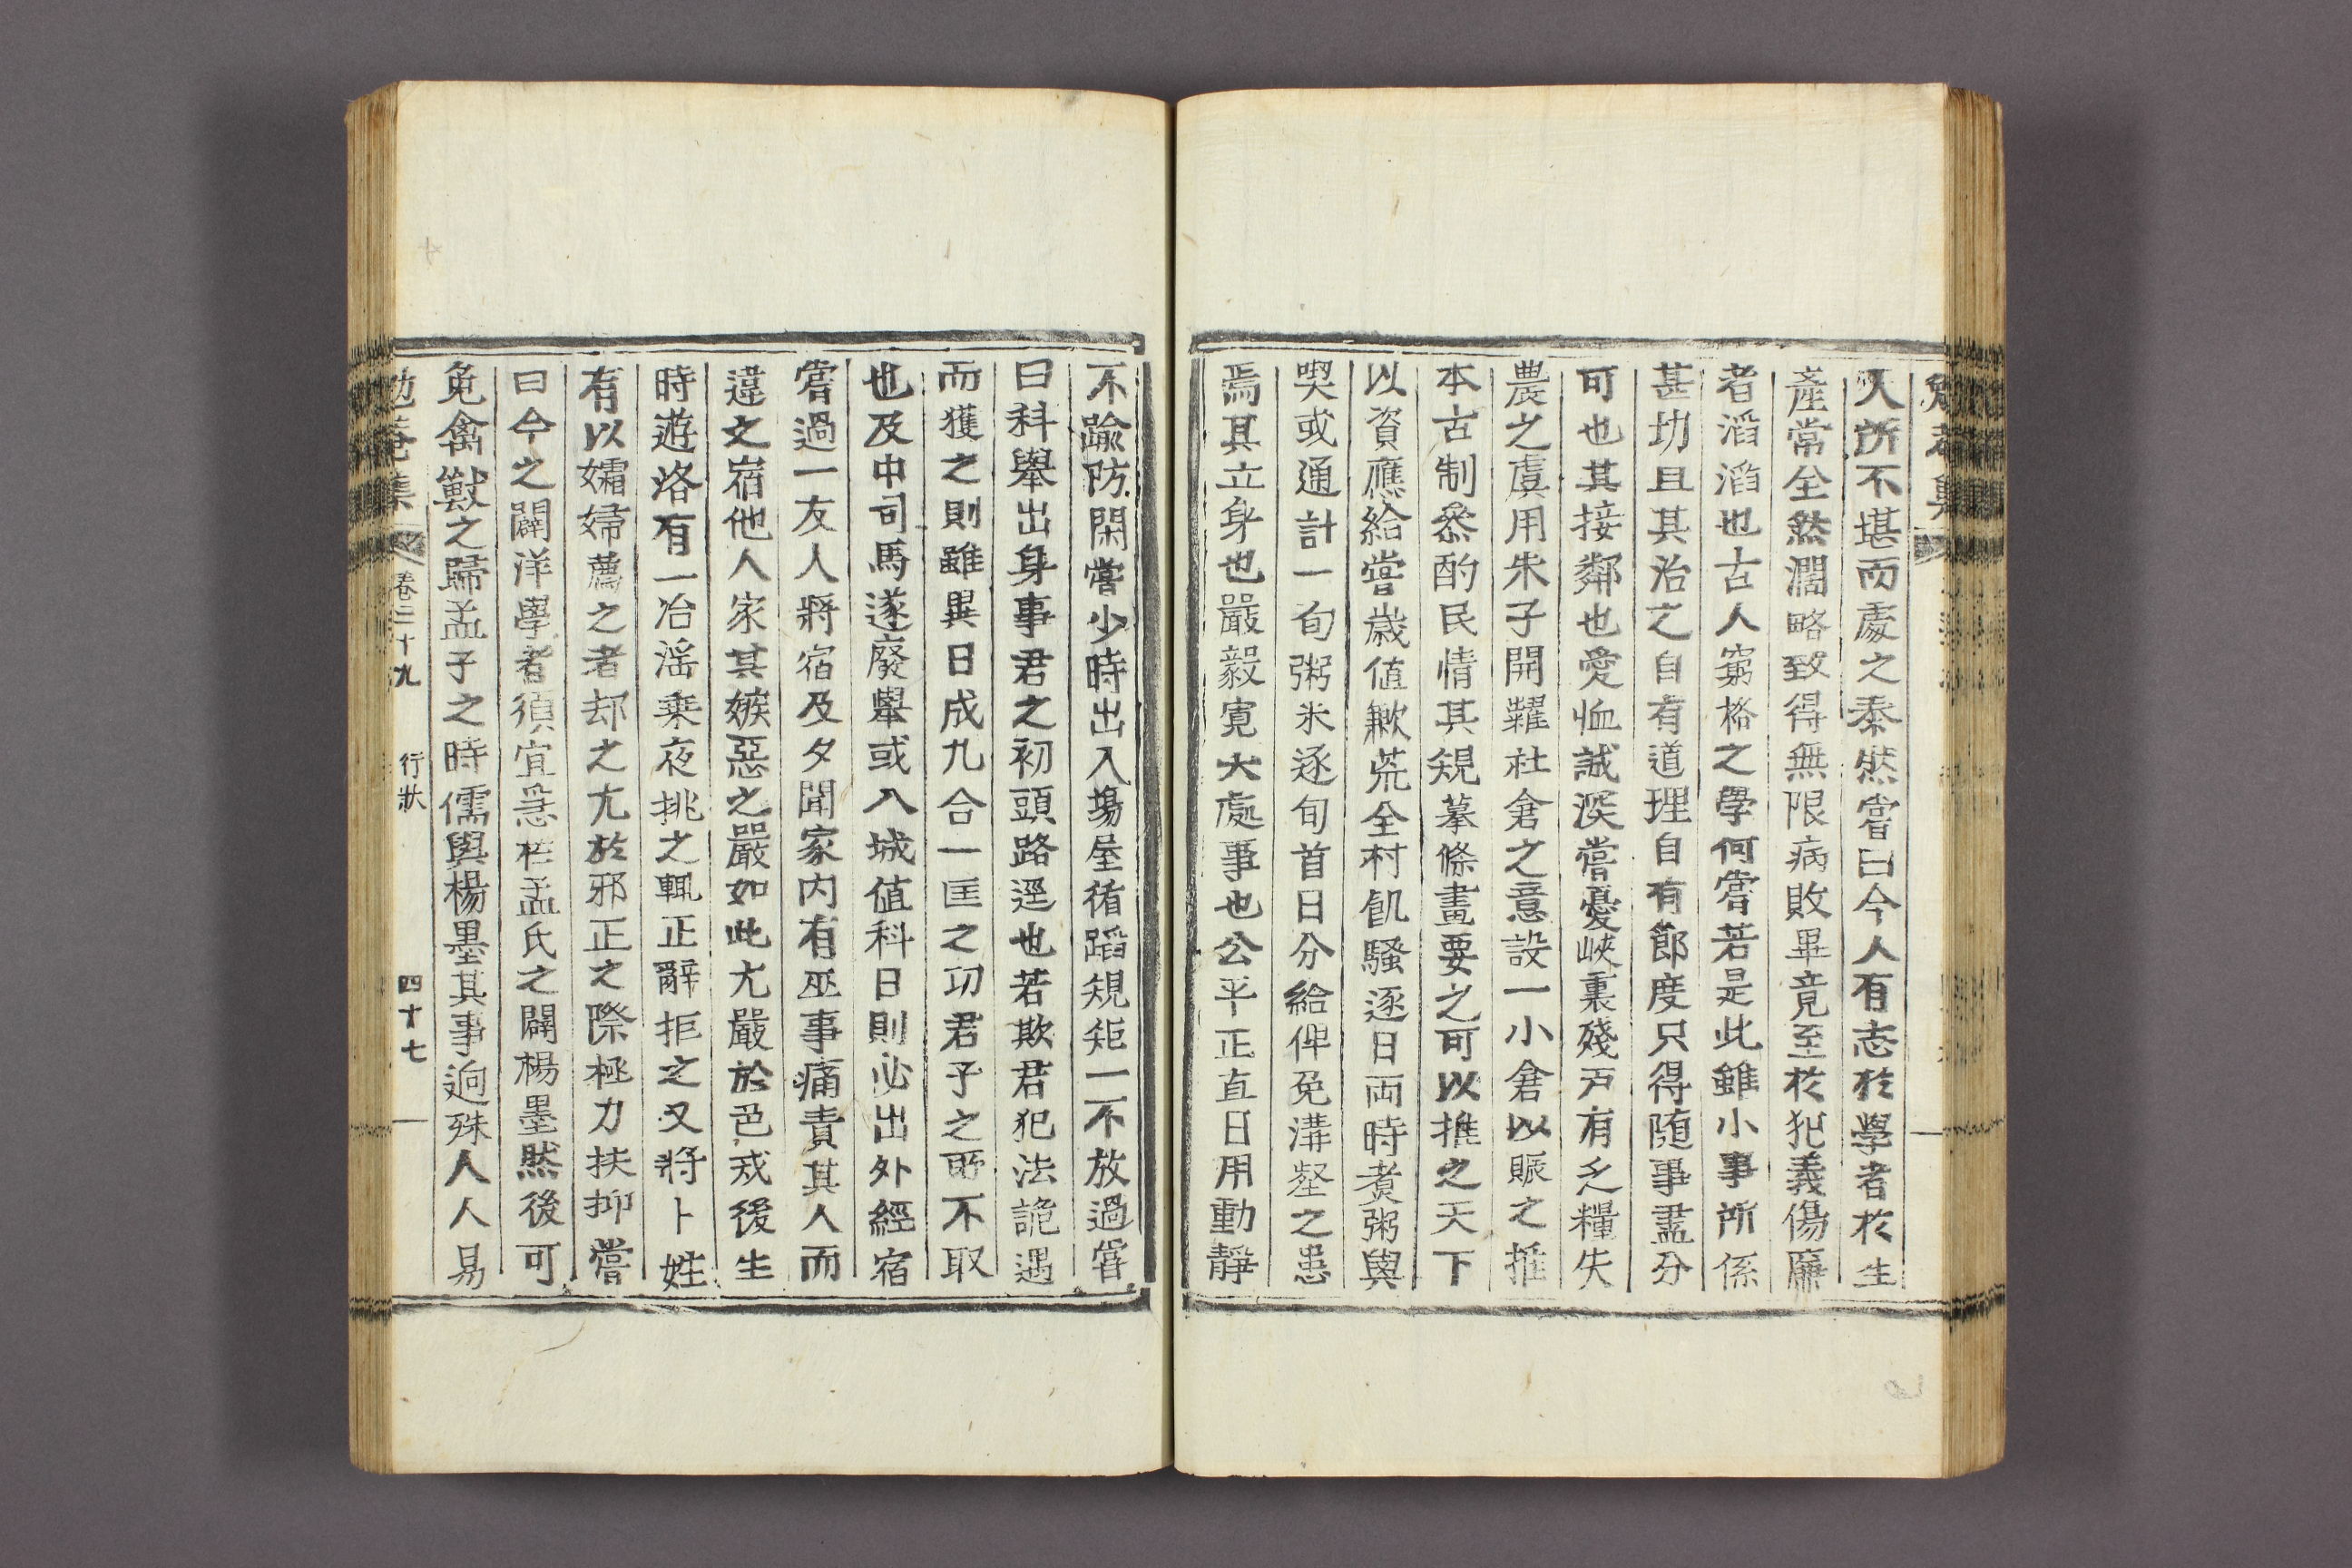 人所不堪而處之泰然嘗曰今人有志於學者於生
產常全然濶略致得無限病敗畢竟至於犯義傷廉
者滔滔也古人窮格之學何嘗若是此雖小事所係
甚切且其治之自有道理自有節度只得随事盡分
可也其接鄰也愛恤誠深嘗憂峽裏殘戸有乏糧失
農之虞用朱子開糶社倉之意設一小倉以賑之推
本古制叅酌民情其䂓摹條畫要之可以推之天下
以資應給嘗歲值歉荒全村飢騷逐日両時煑粥與
喫或通計一旬粥米逐旬首日分給俾免溝壑之患
焉其立身也嚴毅寬大處事也公平正直日用動靜
不踰防閑嘗少時出入塲屋循蹈䂓矩一一不放過嘗
曰科擧出身事君之初頭路逕也若欺君犯法詭遇
而獲之則雖異日成九合一匡之功君子之所不取
也及中司馬遂廢擧或入城值科日則必出外經宿
嘗過一友人將宿及夕聞家内有巫事痛責其人而
違之宿他人家其嫉惡之嚴如此尤嚴於色戒後生
時遊洛有一冶滛乗夜挑之輒正辭拒之又將卜姓
有以孀婦薦之者却之尤於邪正之際極力扶抑嘗
曰今之闢洋學者須宜急於孟氏之闢楊墨然後可
免禽獸之歸孟子之時儒與楊墨其事逈殊人人易
勉菴集 卷二十九 行狀 四十七